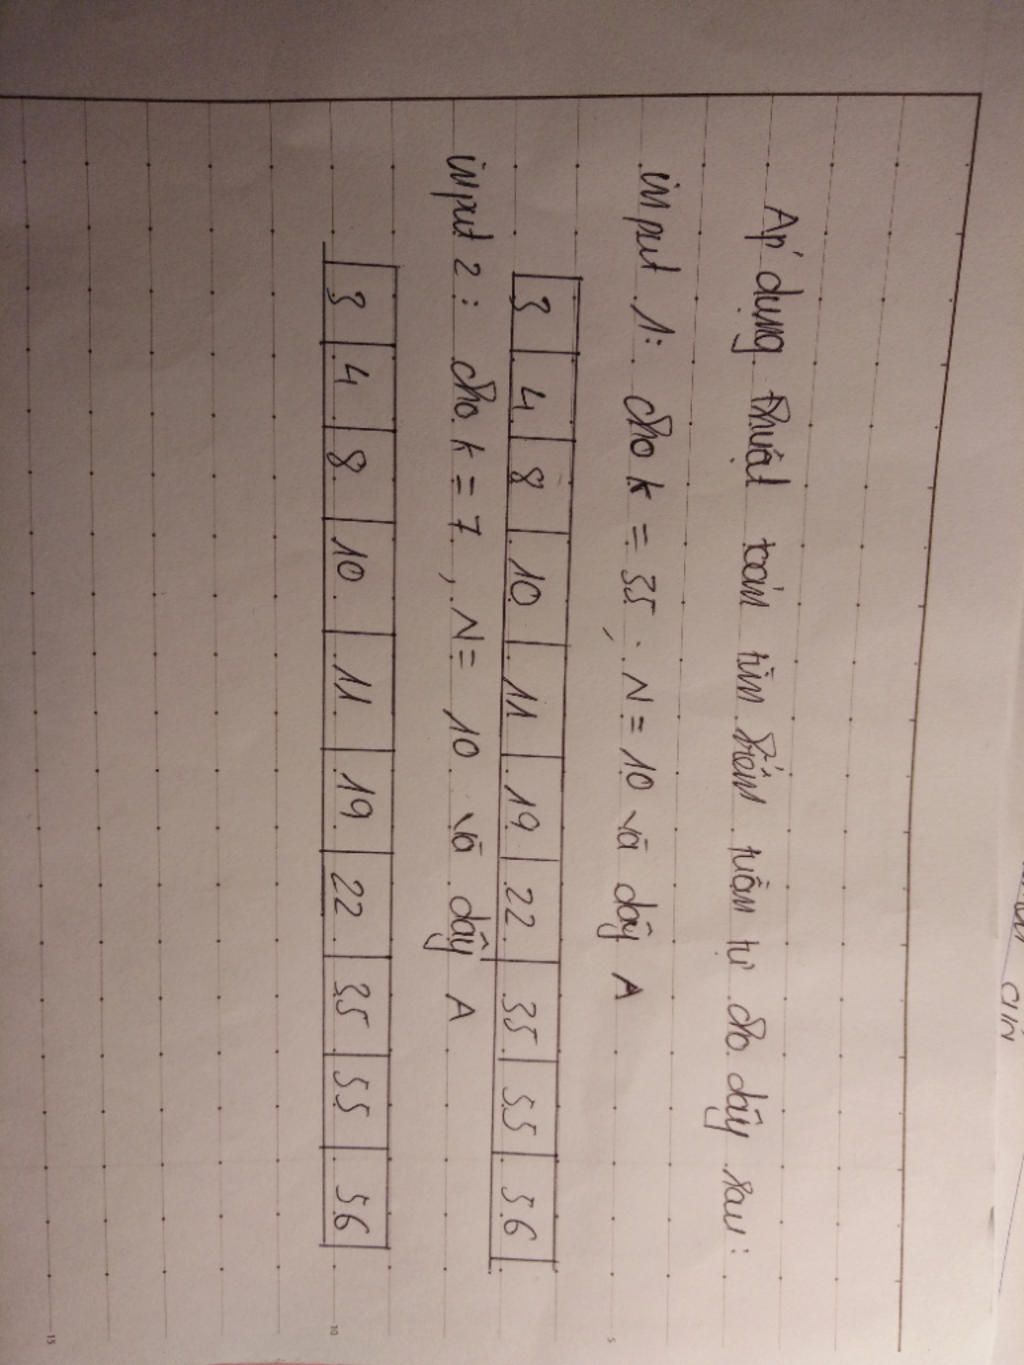 Áp dụng thuật toán tìm kiếm tuần tự cho dãy sau:
input 1: cho k = 35, N = 10 và dãy A
3 4 8 10 11 19 22 35 55 56
input 2: cho k = 7, N = 10 và dãy A
3 4 8 10 11 19 22 35 55 56
5
10
15